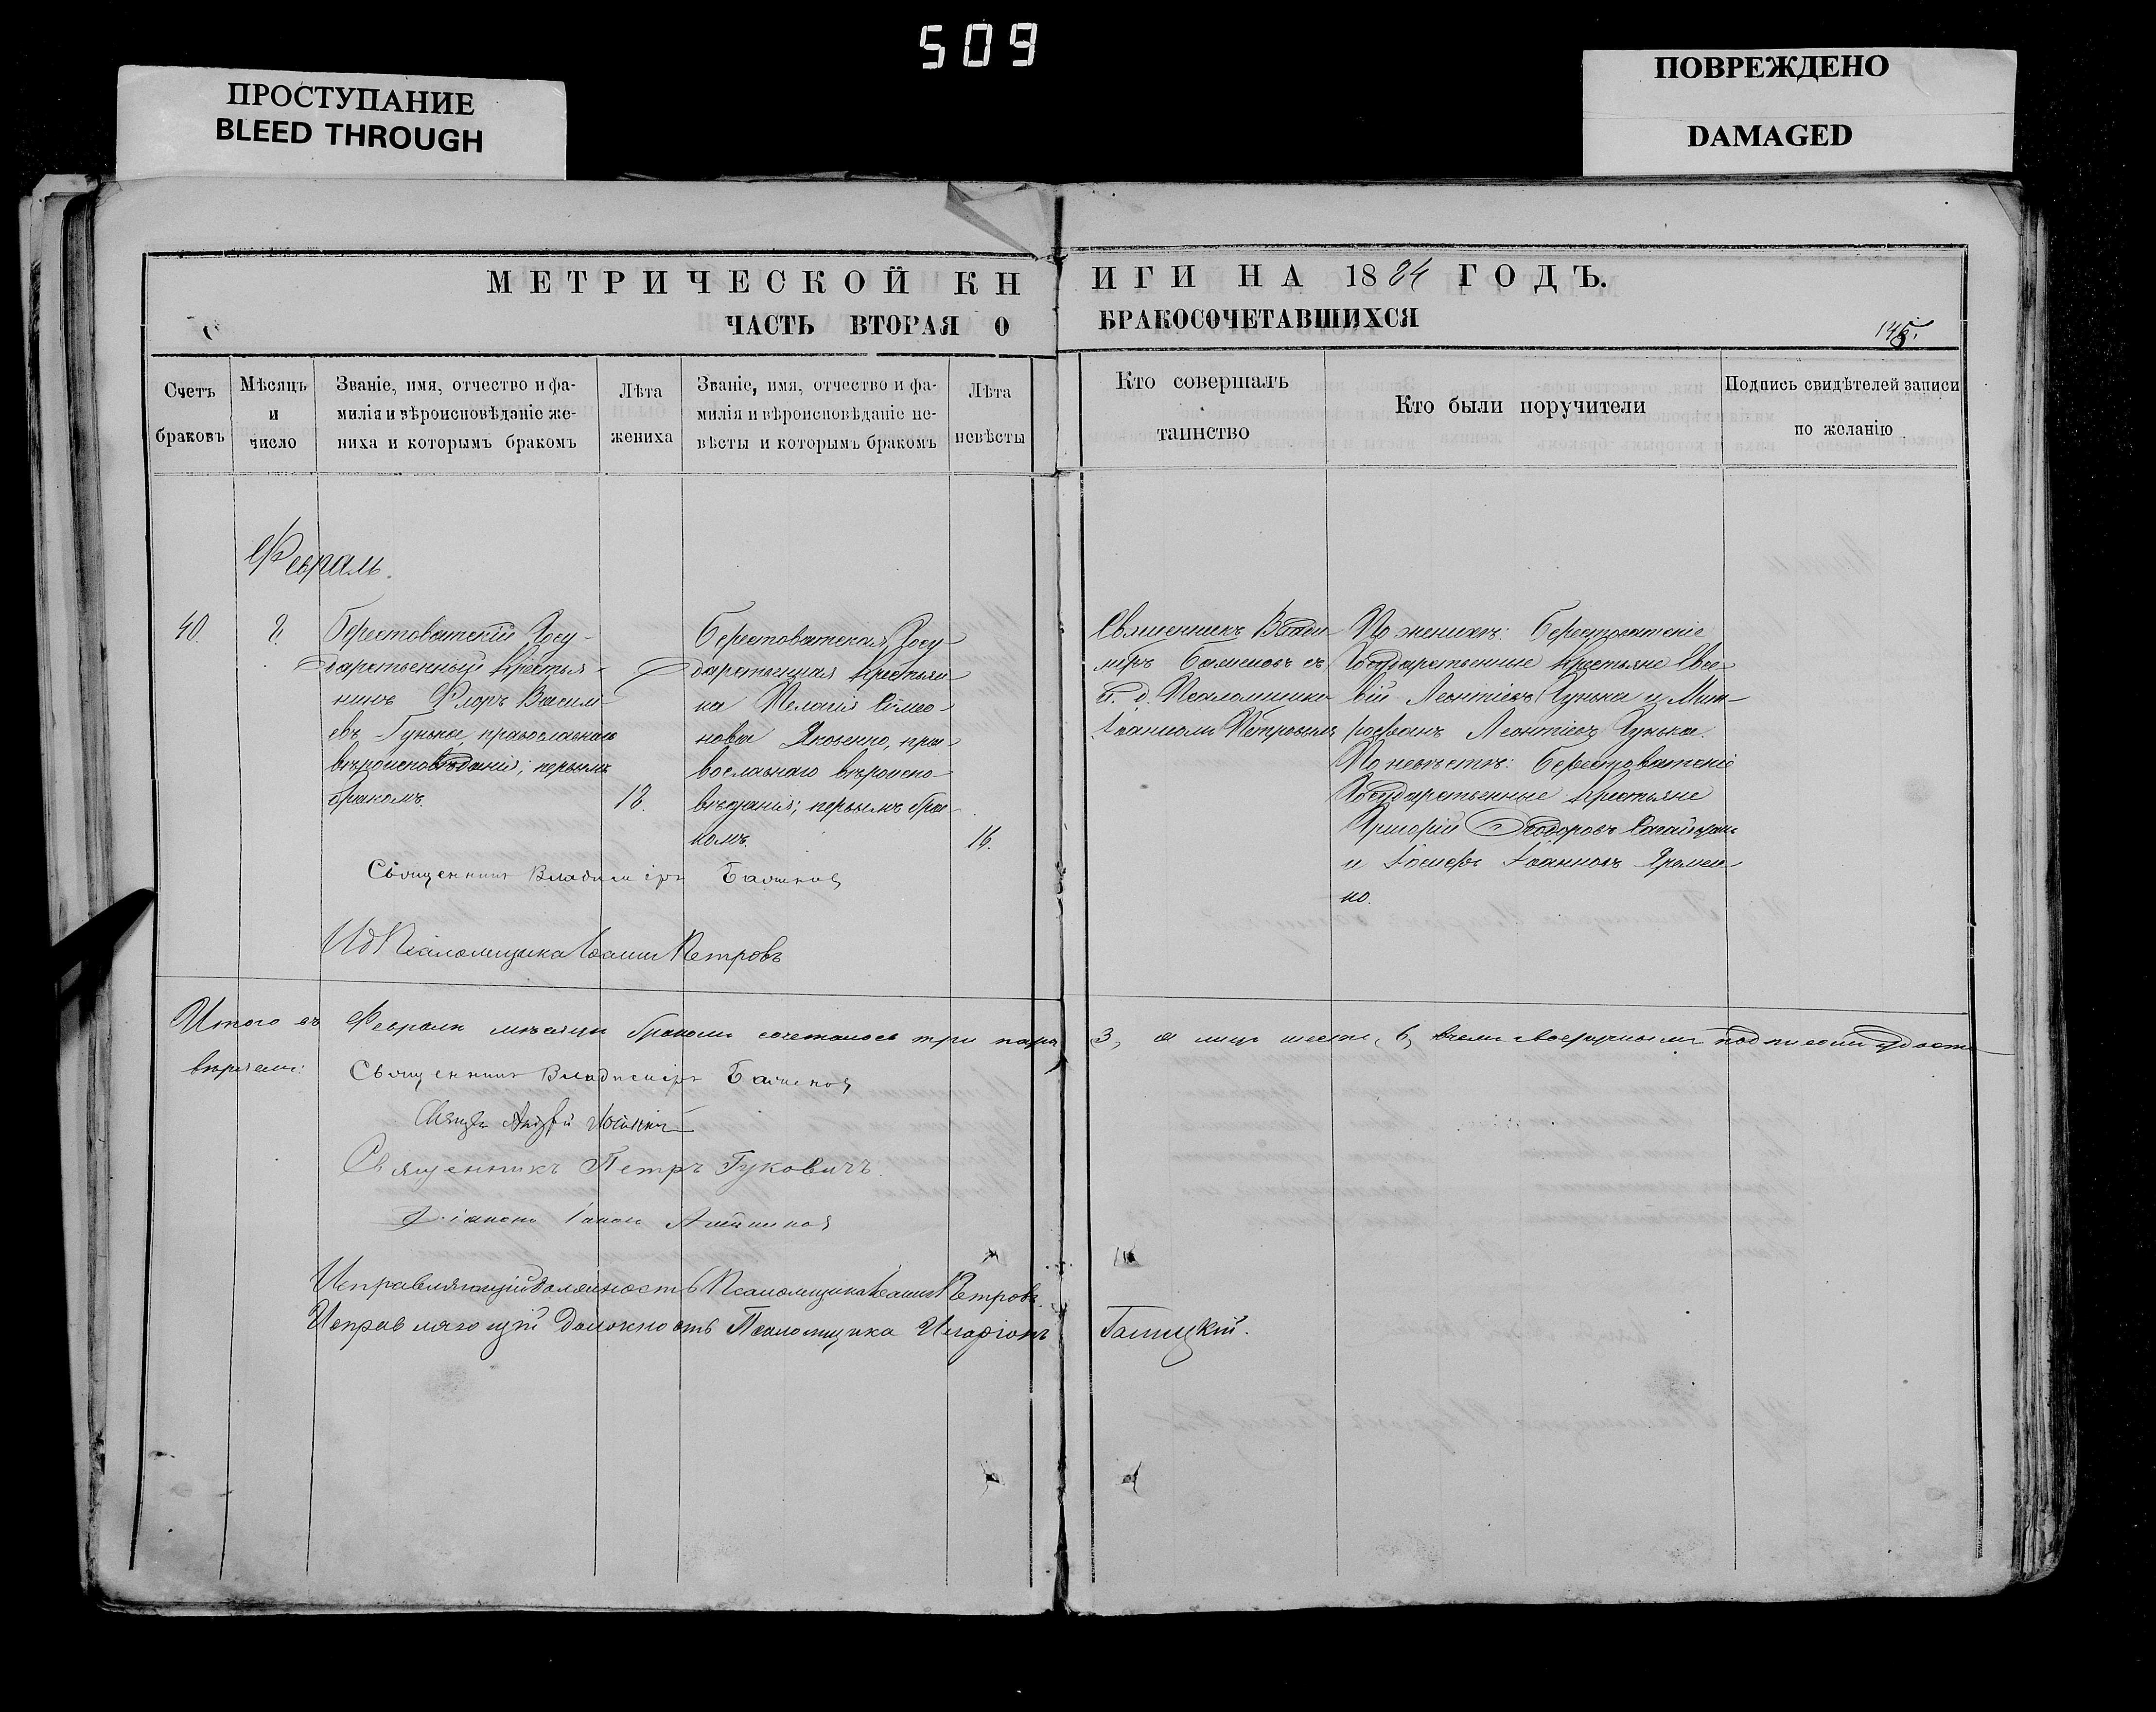 509
ПРОСТУПАНИЕ
BLEED THROUGH
ПОВРЕЖДЕНО
DAMAGED
МЕТРИЧЕСКОЙ КНИГИ НА 1884 ГОДЪ.
ЧАСТЬ ВТОРАЯ О БРАКОСОЧЕТАВШИХСЯ
145.
Счетъ
браковъ
Мѣсяцъ
и
число
Званіе, имя, отчество и фа-
милія и вѣроисповѣданіе же-
ниха и которымъ бракомъ
Лѣта
жениха
Званіе, имя, отчество и фа-
милія и вѣроисповѣданіе не-
вѣсты и которымъ бракомъ
Лѣта
невѣсты
Кто совершалъ
таинство
Кто были поручители
Подпись свидѣтелей записи
по желанію
Февраль.
40.
Берестоватскій Госу-
дарственный Крестья-
нинъ Флоръ Василі-
евъ Гунька, православнаго
вѣроисповѣданія; первымъ
бракомъ.
18.
Берестоватская Госу-
дарственная Крестьян-
ка Пелагія Сімео-
нова Яковенко, пра-
вославнаго вѣроиспо-
вѣданія; первымъ бра-
комъ.
16.
Священникъ Влади-
міръ Баженовъ съ
и. д. Псаломщика
Іоанномъ Петровымъ
По женихѣ: Берестоватскіе
Государственные Крестьяне Евсе-
вій Леонтіевъ Гунька и Мит-
рофанъ Леонтіевъ Гунька.
По невѣстѣ: Берестоватскіе
Государственные Крестьяне
Григорій Ѳеодоровъ
и Іосифъ Іоанновъ Яремен-
ко.
Священникъ Владиміръ Баженовъ
ИД Псаломщика Іоаннъ Петровъ
Итого въ Февралѣ мѣсяцѣ бракомъ сочеталось три пары 3, а лицъ шесть, 6, въ чемъ своеручными подписями удосто-
вѣряемъ:
Священникъ Владиміръ Баженовъ
Священникъ Петръ Гуковичъ.
Діаконъ Іаковъ
Исправляющій Должность Псаломщика Іоаннъ Петровъ.
Исправляющій должность Псаломщика Иларіонъ Галицкій.